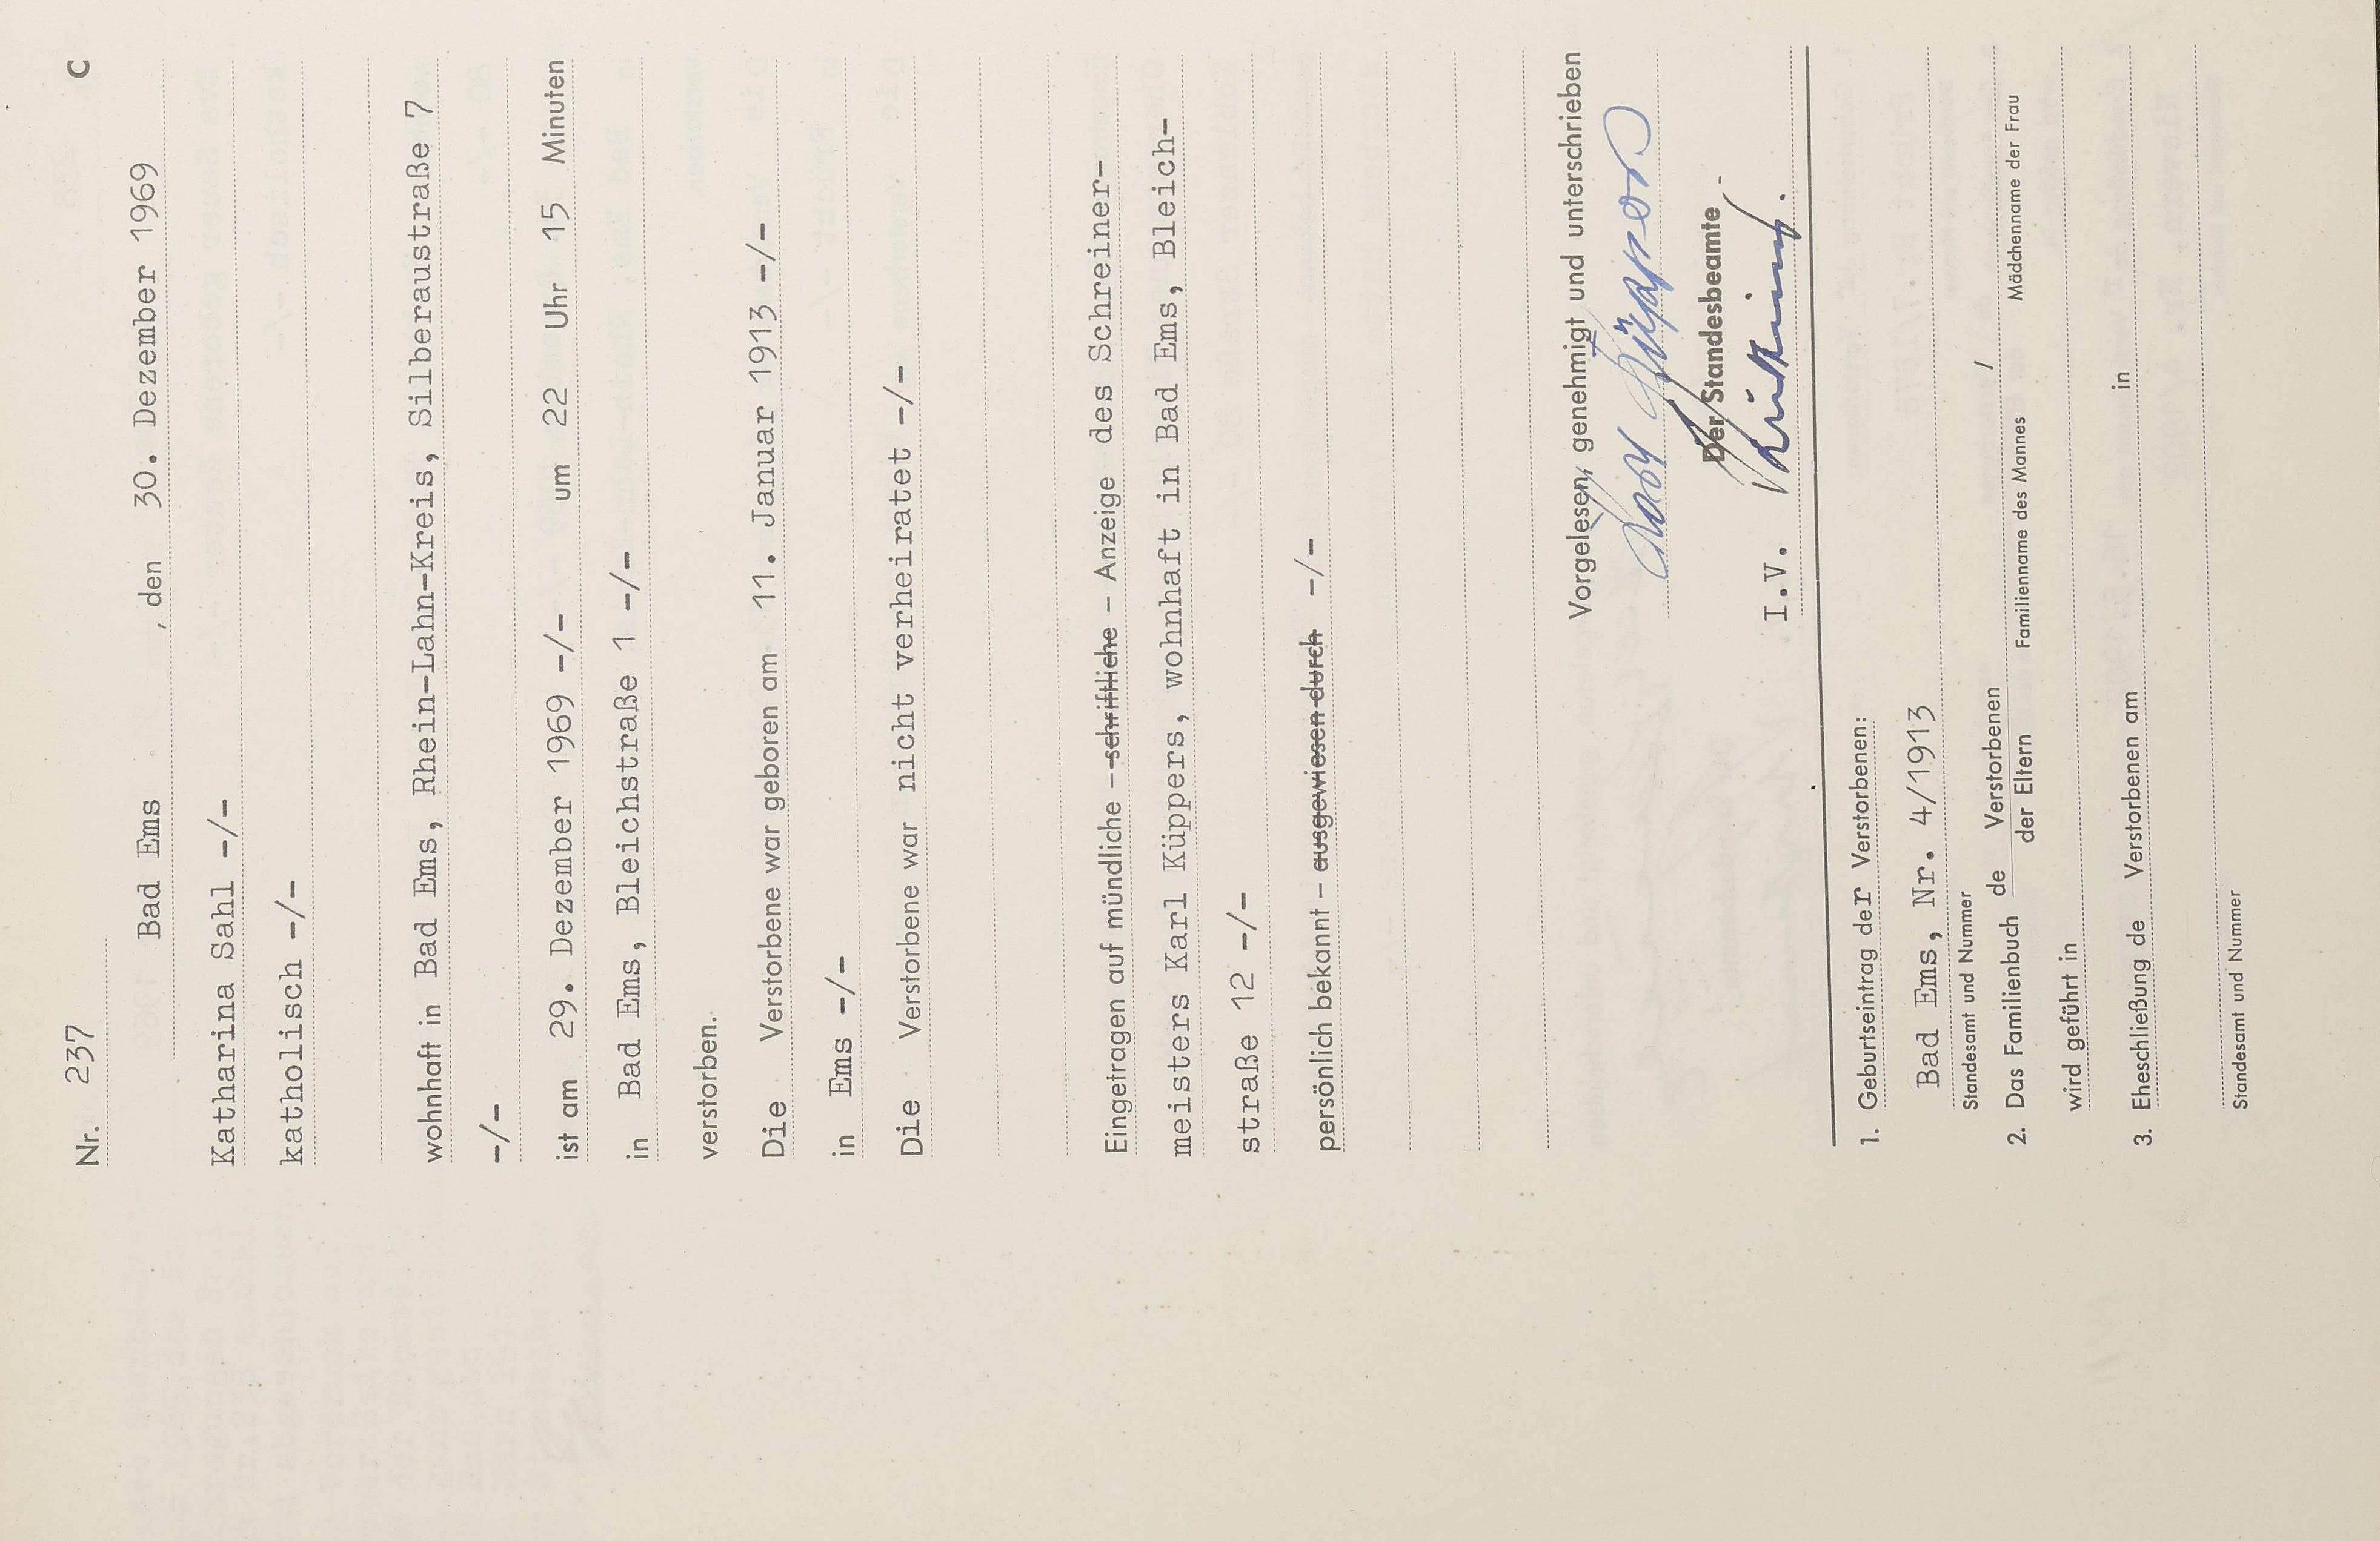 Nr. 237 C
Bad Ems, den 30. Dezember 1969
Katharina Sahl -/-
katholisch -/-
wohnhaft in Bad Ems, Rhein-Lahn-Kreis, Silberaustraße 7
-/-
ist am 29. Dezember 1969 -/- um 22 Uhr 15 Minuten
in Bad Ems, Bleichstraße 1 -/-
verstorben.
Die Verstorbene war geboren am 11. Januar 1913 -/-
in Ems -/-
Die Verstorbene war nicht verheiratet -/-
Eingetragen auf mündliche – schriftliche – Anzeige des Schreiner-
meisters Karl Küppers, wohnhaft in Bad Ems, Bleich-
straße 12 -/-
persönlich bekannt – ausgewiesen durch -/-
Vorgelesen, genehmigt und unterschrieben
Karl Küppers
Der Standesbeamte
I.V.
1. Geburtseintrag der Verstorbenen:
Bad Ems, Nr. 4/1913
Standesamt und Nummer
2. Das Familienbuch de Verstorbenen /
der Eltern Familienname des Mannes Mädchenname der Frau
wird geführt in
3. Eheschließung de Verstorbenen am in
Standesamt und Nummer